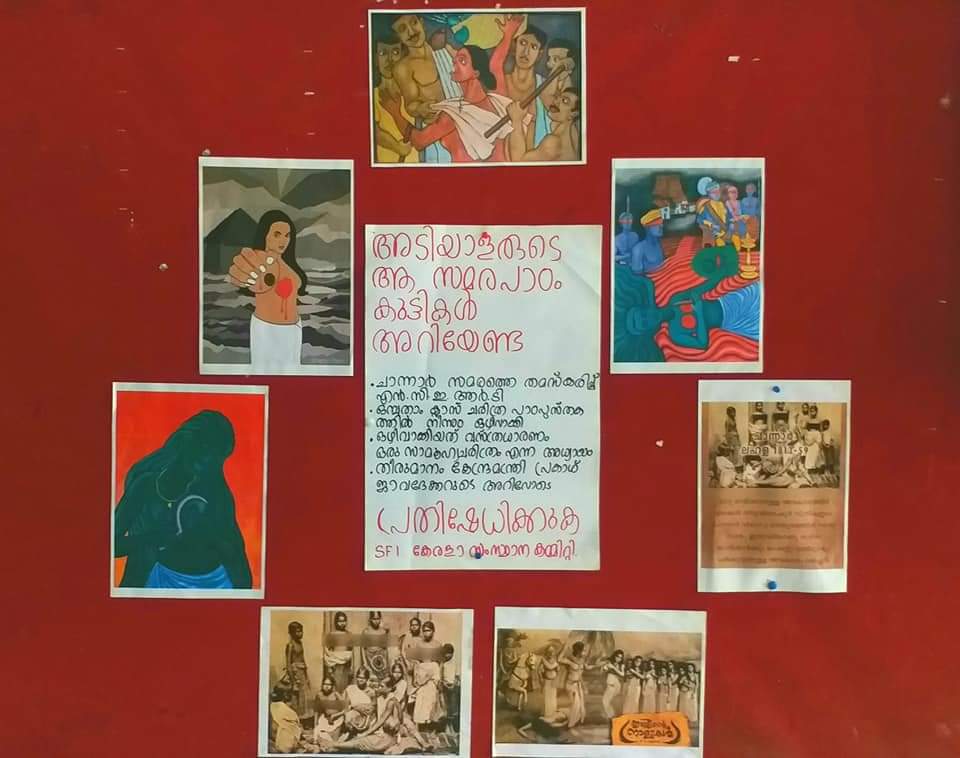 അടിയാളരുടെ
ആ സമരപാഠം
കുട്ടികൾ
അറിയേണ്ട
• ചാന്നാർ സമരത്തെ തമസ്കരിച്ച്
എൻ.സി.ഇ ആർ.ടി
• ഒമ്പതാം ക്ലാസ് ചരിത്ര പാഠപുസ്തക
ത്തിൽ നിന്നും ഒഴിവാക്കി
• ഒഴിവാക്കിയത് വസ്ത്രധാരണം
ഒരു സാമൂഹ്യചരിത്രം എന്ന അധ്യായം
• തീരുമാനം കേന്ദ്രമന്ത്രി പ്രകാശ്
ജാവദേക്കറുടെ അറിവോടെ
പ്രതിഷേധിക്കുക
SFI കേരളാ സംസ്ഥാന കമ്മിറ്റി.
ചാന്നാർ
ലഹള 1813-59